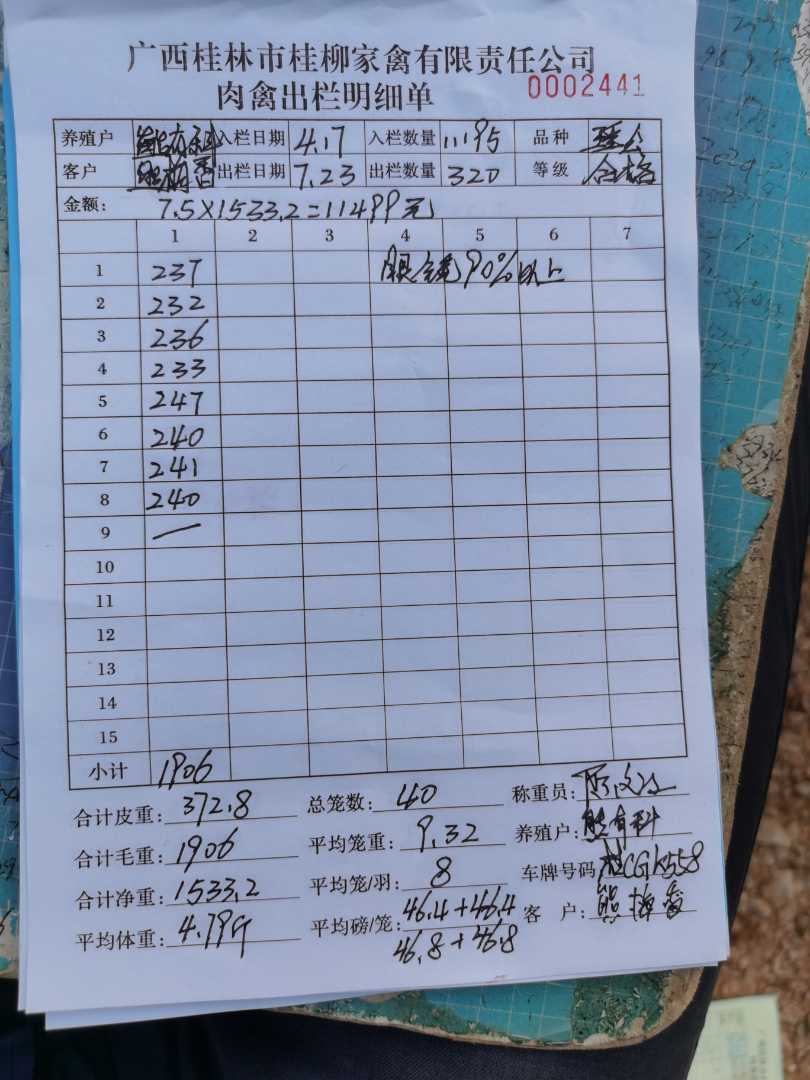 广西桂林市桂柳家禽有限责任公司
肉禽出栏明细单 0002441
养殖户 熊有科 入栏日期 4.17 入栏数量 11195 品种
客户 出栏日期 7.23 出栏数量 320 等级 合格
金额: 7.5×1533.2=11499元
1 2 3 4 5 6 7
1 237 眼 90%以上
2 232
3 236
4 233
5 247
6 240
7 241
8 240
9 —
10
11
12
13
14
15
小计 1906
合计皮重: 372.8 总笼数: 40 称重员:
合计毛重: 1906 平均笼重: 9.32 养殖户: 熊有科
合计净重: 1533.2 平均笼/羽: 8 车牌号码 桂CGK558
平均体重: 4.79斤 平均磅/笼: 46.4+46.4 客 户:
46.8+46.8